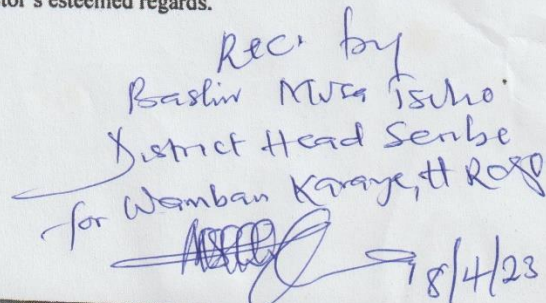 tor's esteemed regards.
Rec. by
Bashir Musa Tsoho
District Head Scribe
for Wamban Karaye, H
18/4/23